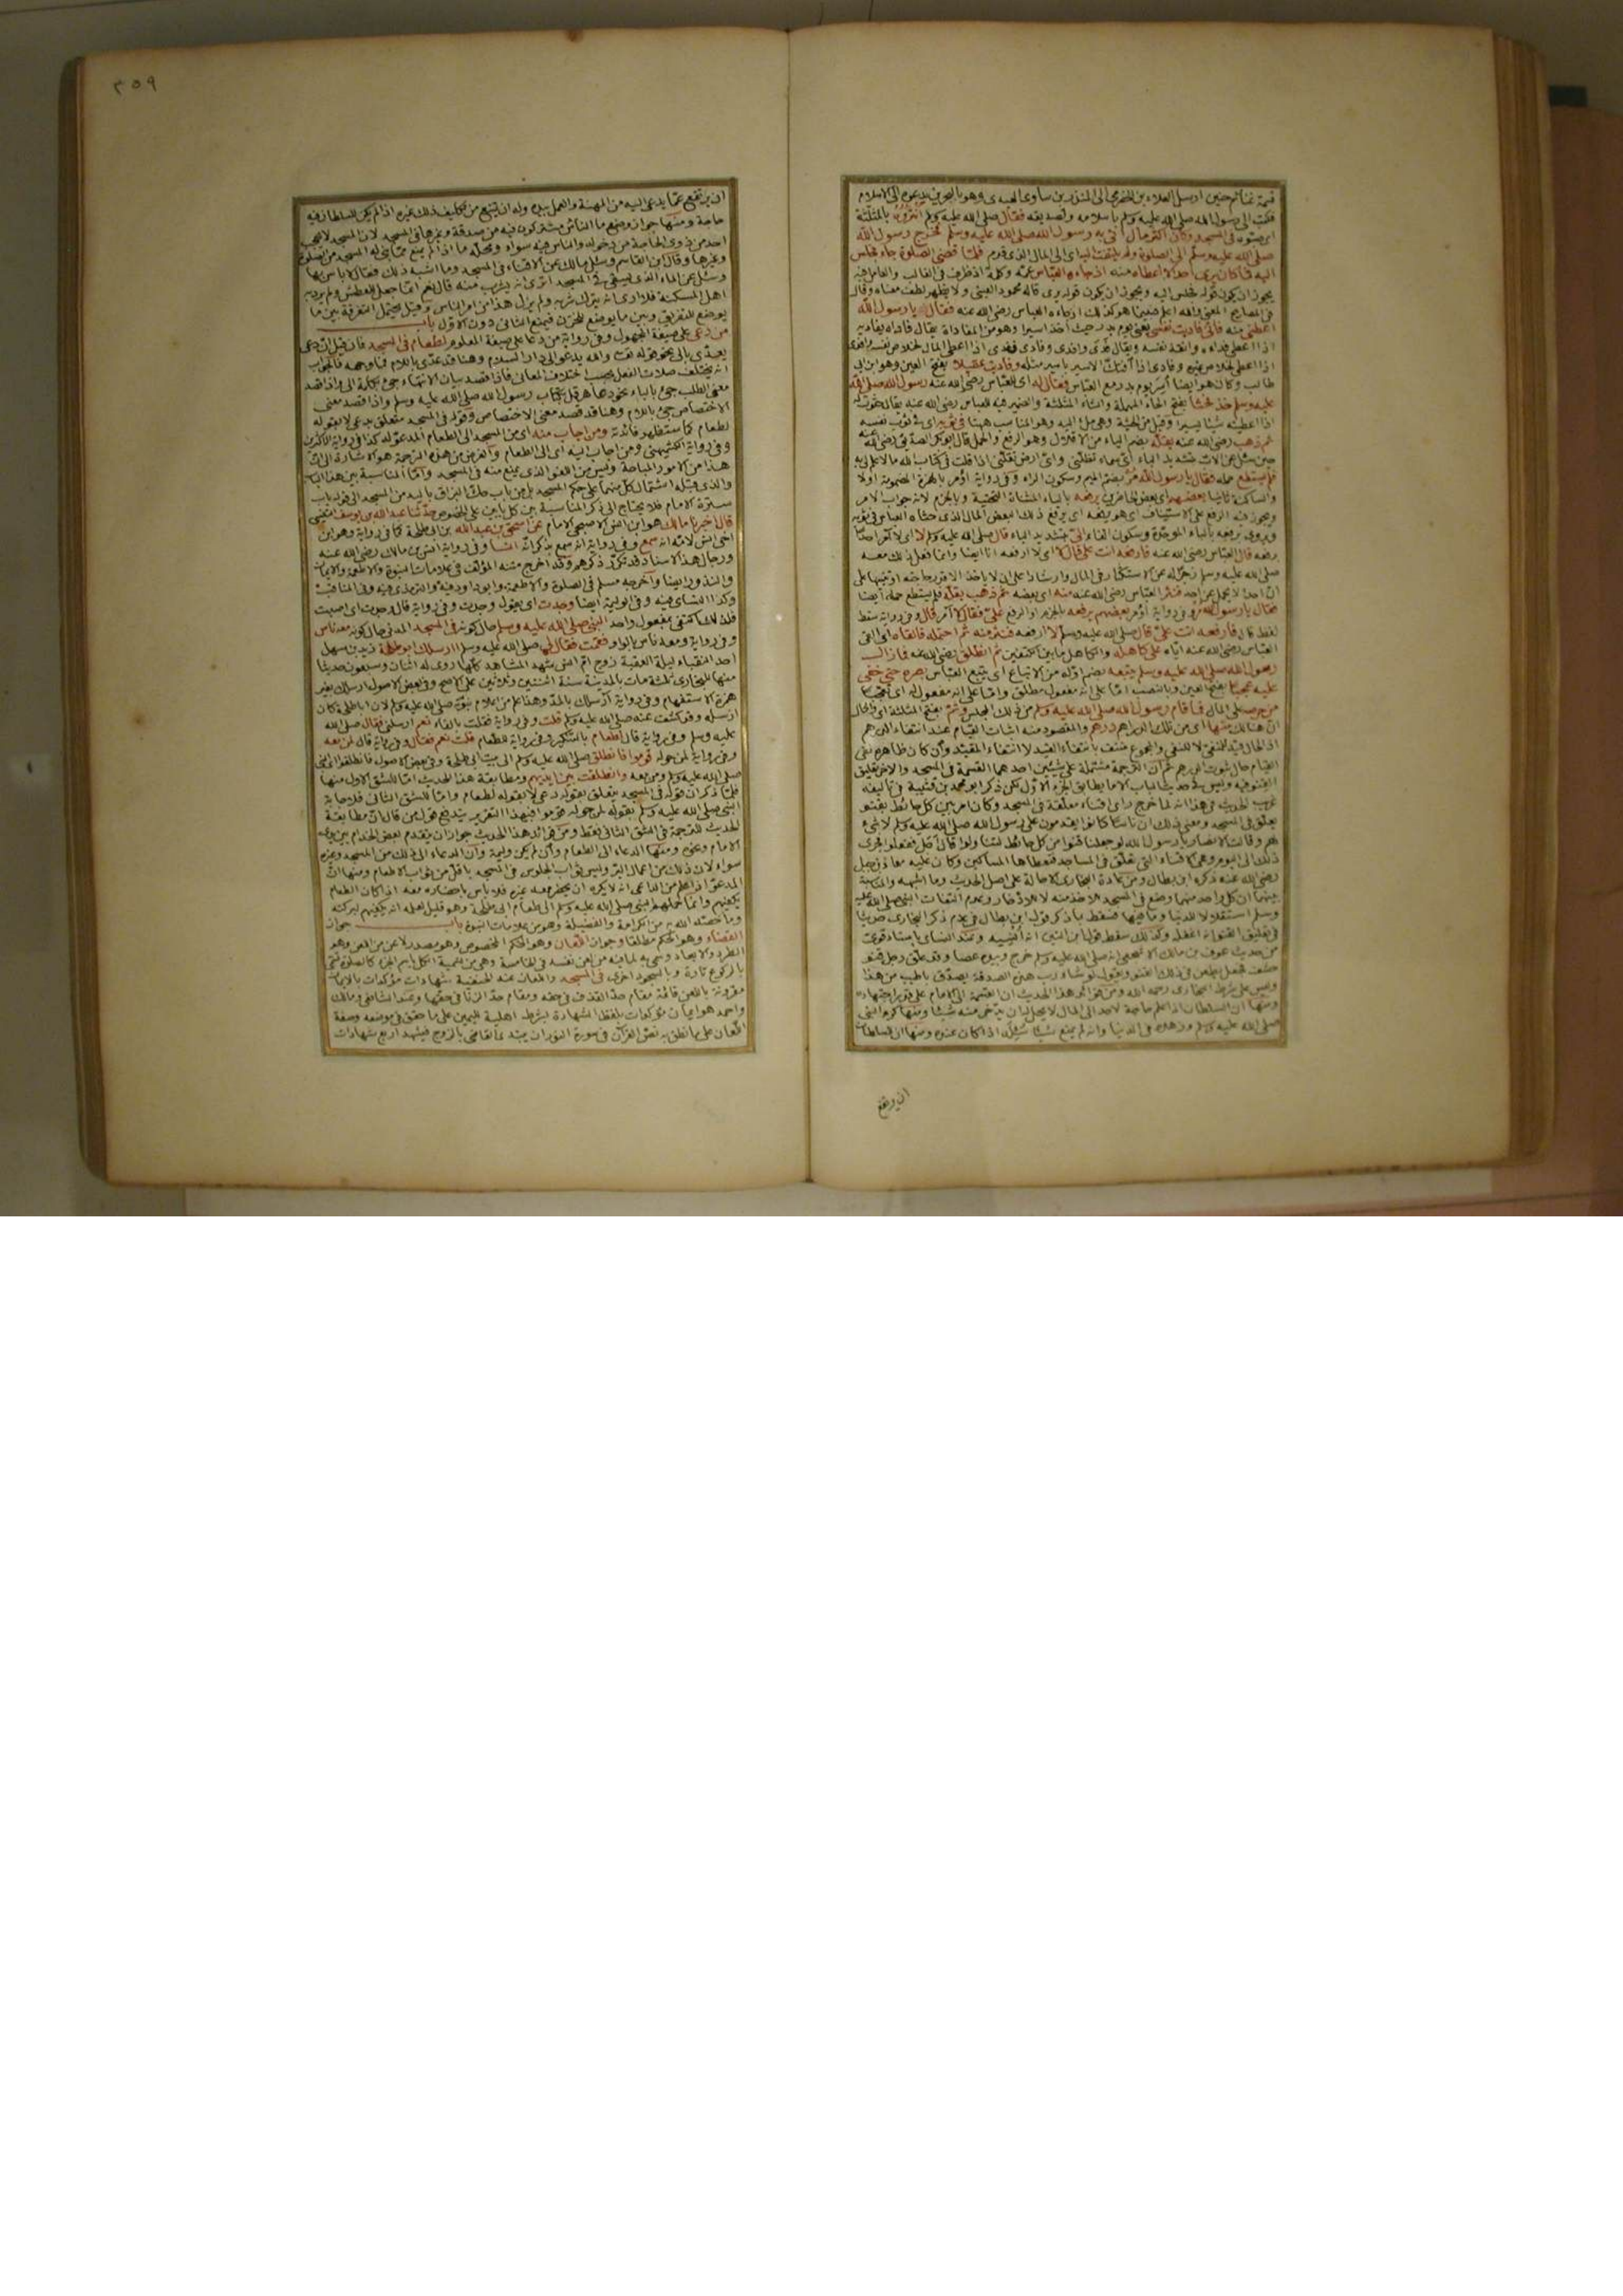 قسمة غنائم حنين ارسل العلاء بن الحضرمي الى المنذر بن ساوى العبدى وهو بالبحرين يدعوه الى الاسلام
فكتب الى رسول الله صلى الله عليه وسلم باسلامه وتصديقه فقال صلى الله عليه وسلم انثروه بالمثلثة
فى المسجد وكان اكثر مال اتى به رسول الله صلى الله عليه وسلم فخرج رسول الله
صلى الله عليه وسلم الى الصلوة ولم يلتفت اليه اى الى المال الذى قدم فلما قضى الصلوة جاء فجلس
اليه فما كان يرى احدا الا اعطاه منه اذ جاءه العباس عمه وكلمة اذ ظرف فى الغالب والعامل فيه
يجوز ان يكون قوله فجلس اليه ويجوز ان يكون قوله يرى قاله محمود العينى ولا يظهر لطف معناه وقال
فى المصابيح المعنى والله اعلم فبينما هو كذلك اذ جاءه العباس رضى الله عنه فقال يا رسول الله
اعطنى منه فانى فاديت نفسى يعنى يوم بدر حيث اخذ اسيرا وهو من المفاداة يقال فاداه يفاديه
اذا اعطى فداءه وانقذ نفسه ويقال فدى وافدى وفادى ففدى اذا اعطى المال لخلاص نفسه وافدى
اذا اعطى لخلاص غيره وفادى اذا افتك الاسير باسير مثله وفاديت عقيلا بفتح العين وهو ابن ابى
طالب وكان هو ايضا اسر يوم بدر مع العباس فقال له اى للعباس رضى الله عنه رسول الله صلى الله
عليه وسلم خذ فحثا بفتح الحاء المهملة والثاء المثلثة والضمير فيه للعباس رضى الله عنه يقال حثوت له
اذا اعطيته شيئا يسيرا وقيل من الحثية وهى ملء اليد وهو المناسب ههنا فى ثوبه اى فى ثوب نفسه
ثم ذهب رضى الله عنه يقله بضم الياء من الاقلال وهو الرفع والحمل قال ابو بكر الصديق رضى الله عنه
حين سئل عن الاب بتشديد الباء اى سماء تظلنى واى ارض تقلنى اذا قلت فى كتاب الله ما لا علم لى به
فلم يستطع حمله فقال يا رسول الله مر بضم الميم وسكون الراء وفى رواية اؤمر بالهمزة المضمومة اولا
والساكنة ثانيا بعضهم اى بعض الحاضرين يرفعه بالياء المثناة التحتية وبالجزم لانه جواب الامر
ويجوز فيه الرفع على الاستيناف اى هو يرفعه اى يرفع ذلك البعض المال الذى حثاه العباس فى ثوبه
ويروى برفعه بالباء الموحدة وسكون الفاء الىّ بتشديد الياء قال صلى الله عليه وسلم لا اى لا آمر احدا
يرفعه قال العباس رضى الله عنه فارفعه انت على قال لا اى لا ارفعه انا ايضا وانما فعل ذلك معه
صلى الله عليه وسلم زجرا له عن الاستكثار فى المال وارشادا على ان لا ياخذ الا قدر حاجته او تنبيها على
ان احدا لا يحمل عن احد فنثر العباس رضى الله عنه منه اى بعضه ثم ذهب يقله فلم يستطع حمله ايضا
فقال يا رسول الله مر وفى رواية اؤمر بعضهم يرفعه بالجزم او الرفع علىّ فقال لا آمر قال وفى رواية سقط
لفظ قال فارفعه انت علىّ قال صلى الله عليه وسلم لا ارفعه فنثر منه ثم احتمله فالقاه اى القى
العباس رضى الله عنه اياه على كاهله والكاهل ما بين الكتفين ثم انطلق رضى الله عنه فما زال
رسول الله صلى الله عليه وسلم يتبعه بضم اوله من الاتباع اى يتبع العباس بصره حتى خفى
علينا عجبا بفتح العين وبالنصب اما على انه مفعول مطلق واما على انه مفعول له اى تعجبا
من حرصه على المال فما قام رسول الله صلى الله عليه وسلم من ذلك المجلس وثم بفتح المثلثة اى والحال
ان هنالك منها اى من تلك الدراهم درهم والمقصود منه اثبات القيام عند انتفاء الدرهم
اذ الحال قيد للمنفى لا للنفى والمجموع منتف بانتفاء القيد لا انتفاء المقيد وان كان ظاهره نفى
القيام حال ثبوت الدرهم ثم ان الترجمة مشتملة على شيئين احدهما القسمة فى المسجد والاخر تعليق
القنو فيه وليس فى حديث الباب الا ما يطابق الجزء الاول لكن ذكر ابو محمد بن قتيبة فى تاليفه
غريب الحديث فى هذا انه لما خرج راى اقناء معلقة فى المسجد وكان امر بين كل حائط بقنو
يعلق فى المسجد ومعنى ذلك ان ناسا كانوا يقدمون على رسول الله صلى الله عليه وسلم لا شىء
لهم وقالت الانصار يا رسول الله لو جعلنا قنوا من كل حائط لهؤلاء قال اجل ففعلوا فجرى
ذلك الى اليوم وهى الاقناء التى تعلق فى المساجد فتعطاها المساكين وكان عليه معاذ بن جبل
رضى الله عنه ذكره ابن بطال ومن عادة البخارى الاحالة على اصل الحديث وما اشبهه والمناسبة
بينهما ان كل واحد منهما وضع فى المسجد للاخذ منه لا للادخار وعدم التفات النبى صلى الله عليه
وسلم استقلالا للدنيا وما فيها فسقط بما ذكر قول ابن بطال فى عدم ذكر البخارى حديثا
فى تعليق القنو انه اغفله وكذلك سقط قول ابن التين انه أُنسيه وعند النسائى باسناد قوى
من حديث عوف بن مالك الاشجعى انه صلى الله عليه وسلم خرج وبيده عصا وقد علق رجل قنو
حشف فجعل يطعن فى ذلك القنو ويقول لو شاء رب هذه الصدقة تصدق باطيب من هذا
وليس على شرط البخارى رحمه الله ومن فوائد هذا الحديث ان القسمة الى الامام على قدر اجتهاده
ومنها ان السلطان اذا علم حاجة لاحد الى المال لا يحل له ان يدخر منه شيئا ومنها كرم النبى
صلى الله عليه وسلم وزهده فى الدنيا وانه لم يمنع شيئا سئله اذا كان عنده ومنها ان للسلطان
ان يرتفع
٣٥٩
ان يرتفع عما يدعى اليه من المهنة والعمل بيده وله ان يمتنع من تكليف ذلك غيره اذا لم يكن للسلطان فيه
حاجة ومنها جواز وضع ما الناس مشتركون فيه من صدقة وغيرها فى المسجد لان المسجد لا يحجب
احد من ذوى الحاجة من دخوله والناس فيه سواء ومحله ما اذا لم يمنع مما بنى له المسجد من الصلوة
وغيرها وقال ابن القاسم وسئل مالك عن الاقناء فى المسجد وما اشبه ذلك فقال لا باس بها
وسئل عن الماء الذى يسقى فى المسجد اترى ان يشرب منه قال نعم انما جعل للعطش ولم يرد به
اهل المسكنة فلا ارى ان يترك شربه ولم يزل هذا من امر الناس وقيل يحتمل التفرقة بين ما
يوضع للتفريق وبين ما يوضع للخزن فيمنع الثانى دون الاول باب
من دعى على صيغة المجهول وفى رواية من دعا على صيغة المعلوم لطعام فى المسجد فان قيل ان دعى
يعدى بالى نحو قوله تعالى والله يدعو الى دار السلام وهنا قد عدى باللام فما وجهه فالجواب
انه تختلف صلات الفعل بحسب اختلاف المعانى فاذا قصد بيان الانتهاء جئ بكلمة الى واذا قصد
معنى الطلب جئ بالباء نحو دعا هرقل بكتاب رسول الله صلى الله عليه وسلم واذا قصد معنى
الاختصاص جئ باللام وهنا قد قصد معنى الاختصاص وقوله فى المسجد متعلق بدعى لا بقوله
لطعام كما ستظهر فائدته ومن اجاب منه اى من المسجد الى الطعام المدعو له كذا فى رواية الاكثرين
وفى رواية الكشميهنى ومن اجاب اليه اى الى الطعام والغرض من هذه الترجمة هو الاشارة الى ان
هذا من الامور المباحة وليس من اللغو الذى يمنع منه فى المسجد واما المناسبة بين هذا الباب
والذى قبله اشتمال كل منهما على حكم المسجد بل من باب حك البزاق باليد من المسجد الى قوله باب
سترة الامام فلا يحتاج الى ذكر المناسبة بين كل بابين على الخصوص حدثنا عبد الله بن يوسف التنيسى
قال اخبرنا مالك هو ابن انس الاصبحى الامام عن اسحق بن عبد الله بن ابى طلحة كما فى رواية وهو ابن
اخى انس لامه انه سمع وفى رواية انه سمع بذكر انه انسا وفى رواية انس بن مالك رضى الله عنه
ورجال هذا الاسناد قد تكرر ذكرهم وقد اخرج متنه المؤلف فى علامات النبوة والاطعمة والايمان
والنذور ايضا واخرجه مسلم فى الصلوة والاطعمة وابو داود فيه والترمذى فيه وفى المناقب
وكذا النسائى فيه وفى الوليمة ايضا وجدت اى يقول وجدت وفى رواية قال وجدت اى اصبت
فلذلك اكتفى بمفعول واحد النبى صلى الله عليه وسلم حال كونه فى المسجد المدنى حال كونه معه ناس
وفى رواية ومعه ناس بالواو فقمت فقال لى صلى الله عليه وسلم ارسلك ابو طلحة زيد بن سهل
احد النقباء ليلة العقبة زوج ام انس شهد المشاهد كلها روى له اثنان وسبعون حديثا
منها للبخارى ثلثة مات بالمدينة سنة اثنتين وثلاثين على الاصح وفى بعض الاصول ارسلك بغير
همزة الاستفهام وفى رواية آرسلك بالمد وهذا علم من اعلام نبوته صلى الله عليه وسلم لان ابا طلحة كان
ارسله وقد كشف عنه صلى الله عليه وسلم قلت وفى رواية فقلت بالفاء نعم ارسلنى فقال صلى الله
عليه وسلم وفى رواية قال لطعام بالتنكير وفى رواية للطعام قلت نعم فقال وفى رواية قال لمن معه
وفى رواية لمن حوله قوموا فانطلق صلى الله عليه وسلم الى بيت ابى طلحة وفى بعض الاصول فانطلقوا اى النبى
صلى الله عليه وسلم ومن معه وانطلقت بين ايديهم ومطابقة هذا الحديث اما للشق الاول منها
فلما ذكر ان قوله فى المسجد متعلق بقوله دعى لا بقوله لطعام واما للشق الثانى فلاجابة
النبى صلى الله عليه وسلم بقوله لمن حوله قوموا فبهذا التقرير يندفع قول من قال ان مطابقة
الحديث للترجمة فى الشق الثانى فقط ومن فوائد هذا الحديث جواز ان يتقدم بعض الخدام بين يدى
الامام وغيره ومنها الدعاء الى الطعام وان لم يكن وليمة وان الدعاء الى ذلك من المسجد وغيره
سواء لان ذلك من اعمال البر وليس ثواب الجلوس فى المسجد باقل من ثواب الاطعام ومنها ان
المدعو اذا علم من الداعى انه لا يكره ان يحضر معه غيره فلا باس باحضاره معه اذا كان الطعام
يكفيهم وانما حملهم النبى صلى الله عليه وسلم الى طعام ابى طلحة وهو قليل لعلمه انه يكفيهم لبركته
وما خصه الله به من الكرامة والفضيلة وهو من علامات النبوة باب جواز
القضاء وهو الحكم مطلقا وجواز اللعان وهو الحكم المخصوص وهو مصدر لاعن من اللعن وهو
الطرد والابعاد وسمى به لما فيه من لعن نفسه فى الخامسة وهى من تسمية الكل باسم الجزء كالصلوة تسمى
بالركوع تارة وبالسجود اخرى فى المسجد واللعان عند الحنفية شهادات مؤكدات بالايمان
مقرونة باللعن قائمة مقام حد القذف فى حقه ومقام حد الزنا فى حقها وعند الشافعى ومالك
واحمد هو ايمان مؤكدات بلفظ الشهادة بشرط اهلية اليمين على ما حقق فى موضعه وصفة
اللعان على ما نطق به نص القرآن فى سورة النور ان يبتدئ القاضى بالزوج فيشهد اربع شهادات